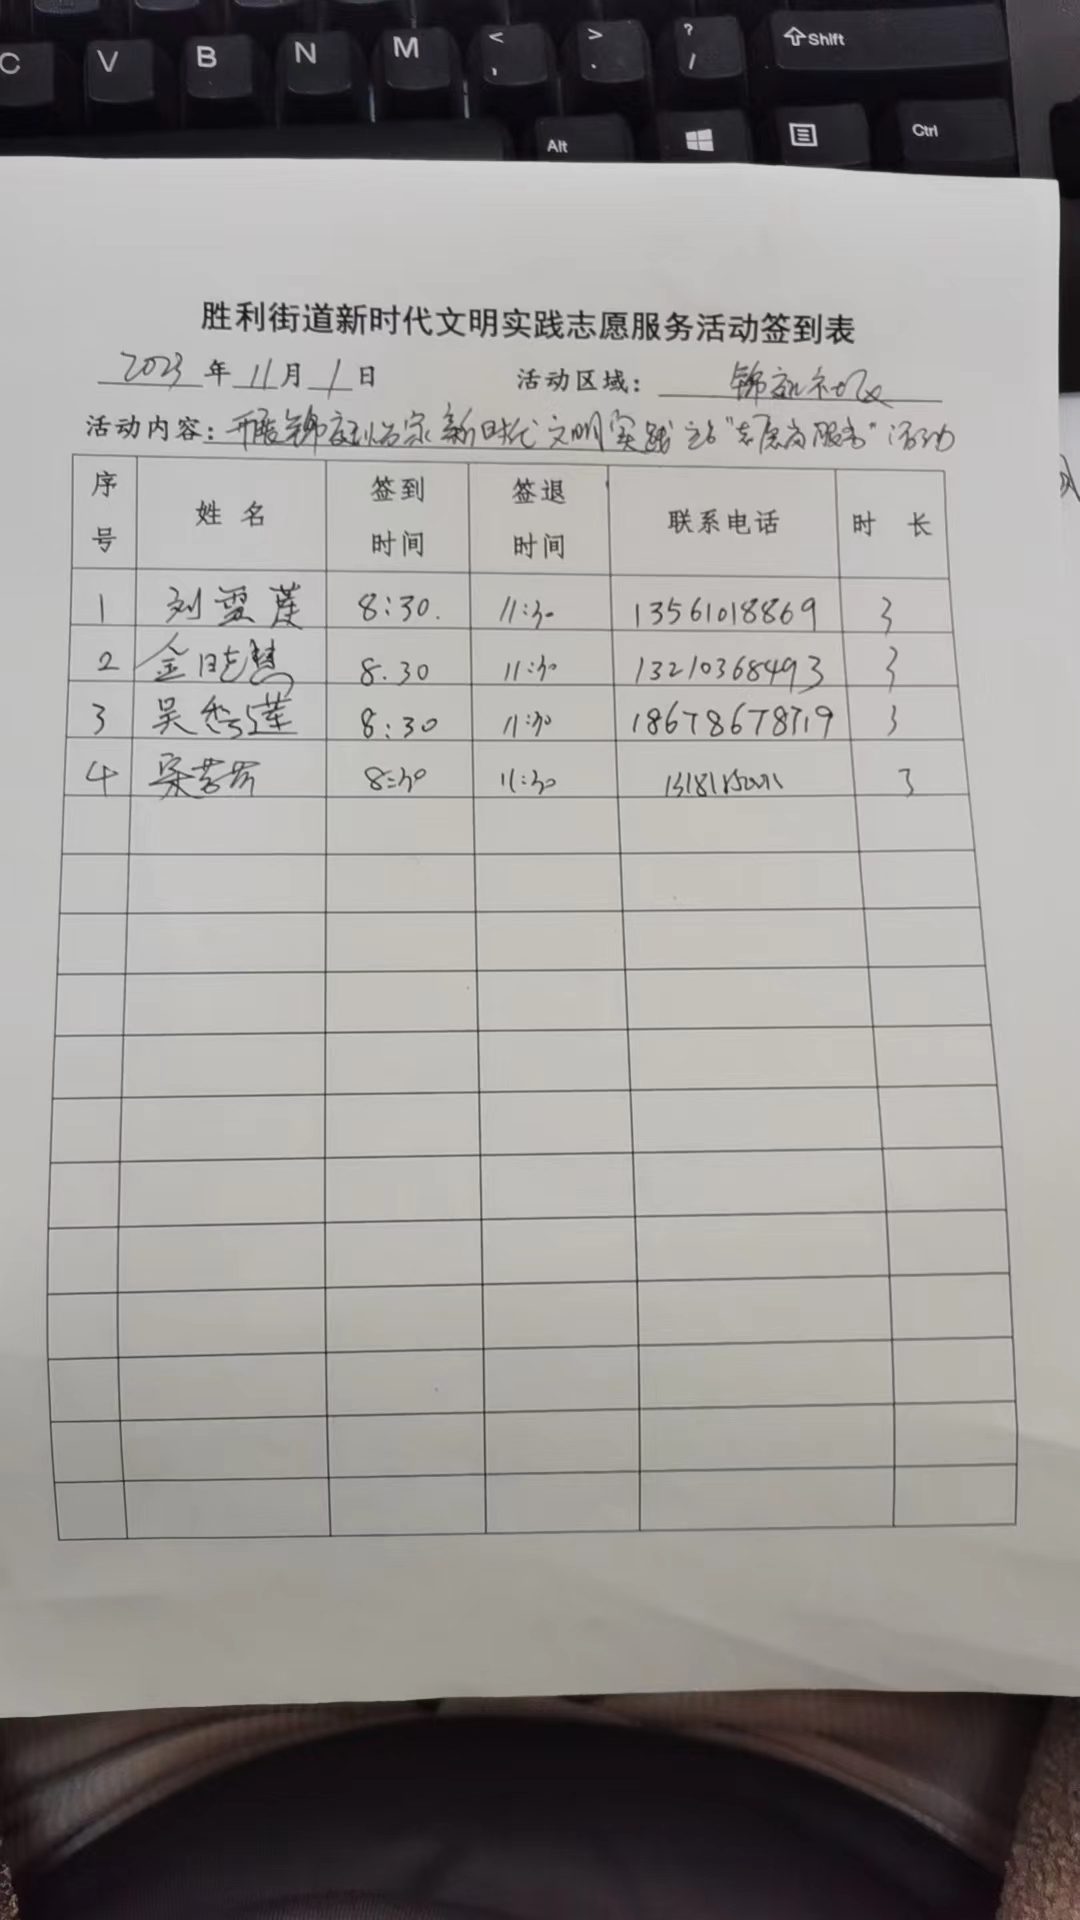 C V B N M < , > . ? / Shift
Alt Ctrl
胜利街道新时代文明实践志愿服务活动签到表
2023 年 11 月 1 日 活动区域:
活动内容: 开展锦 新时代文明实践站"志愿 服务"活动
序号 姓名 签到时间 签退时间 联系电话 时长
1 刘雪莲 8:30. 11:30 13561018869 3
2 金晓慧 8.30 11:30 13210368493 3
3 吴秀莲 8:30 11:30 18678678719 3
4 宋芳芳 8:30 11:30 3